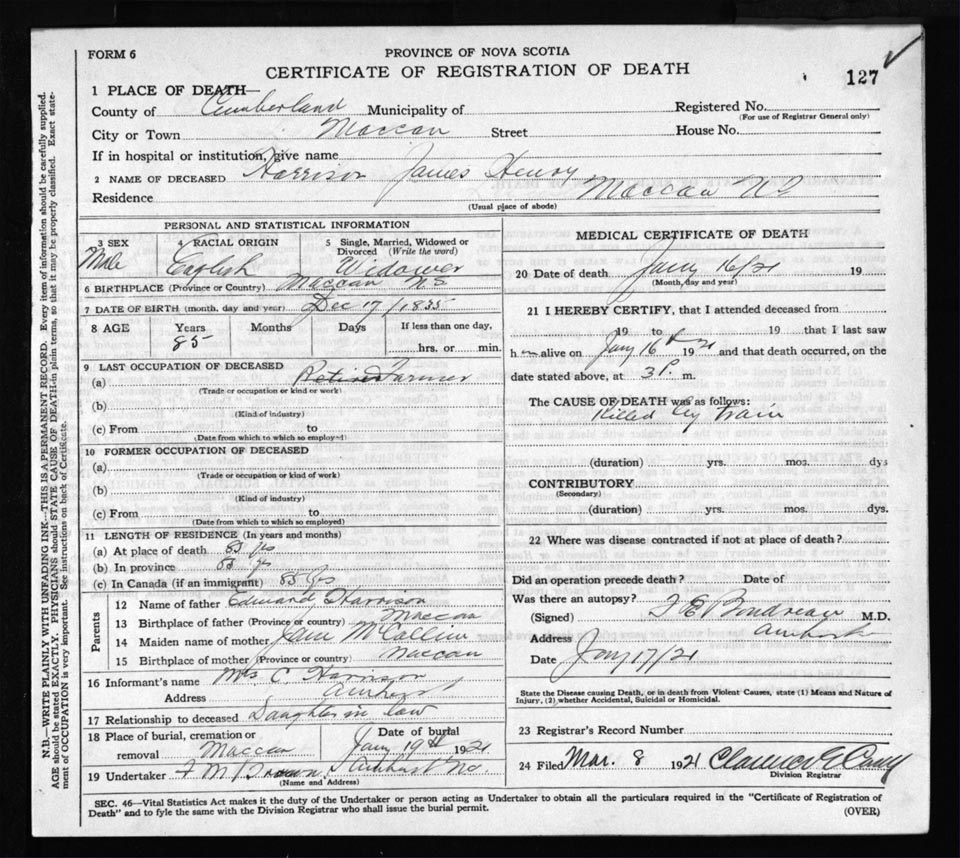 FORM 6
PROVINCE OF NOVA SCOTIA
CERTIFICATE OF REGISTRATION OF DEATH
127
1 PLACE OF DEATH—
County of Cumberland Municipality of
Registered No.
(For use of Registrar General only)
City or Town Maccan Street
House No.
If in hospital or institution, give name
2 NAME OF DECEASED Harrison James Henry
Residence Maccan NS
(Usual place of abode)
PERSONAL AND STATISTICAL INFORMATION
3 SEX Male
4 RACIAL ORIGIN English
5 Single, Married, Widowed or Divorced (Write the word) Widower
6 BIRTHPLACE (Province or Country) Maccan NS
7 DATE OF BIRTH (month, day and year) Dec 17/1835
8 AGE Years Months Days If less than one day,
85 hrs. or min.
9 LAST OCCUPATION OF DECEASED
(a) Retired Farmer
(Trade or occupation or kind of work)
(b)
(Kind of industry)
(c) From to
(Date from which to which so employed)
10 FORMER OCCUPATION OF DECEASED
(a)
(Trade or occupation or kind of work)
(b)
(Kind of industry)
(c) From to
(Date from which to which so employed)
11 LENGTH OF RESIDENCE (In years and months)
(a) At place of death 85 yrs
(b) In province 85 yrs
(c) In Canada (if an immigrant) 85 yrs
Parents
12 Name of father Edward Harrison
13 Birthplace of father (Province or country) Maccan
14 Maiden name of mother Jane McCallum
15 Birthplace of mother (Province or country) Maccan
16 Informant's name Mrs C Harrison
Address Amherst
17 Relationship to deceased Daughter in law
18 Place of burial, cremation or removal Maccan
Date of burial Jany 19th 1921
19 Undertaker F M Brown, Amherst
(Name and Address)
MEDICAL CERTIFICATE OF DEATH
20 Date of death Jany 16/21 19
(Month, day and year)
21 I HEREBY CERTIFY, that I attended deceased from
19 to 19 that I last saw
h alive on Jany 16 1921 and that death occurred, on the
date stated above, at 3 P. m.
The CAUSE OF DEATH was as follows:
Killed by train
(duration) yrs. mos. dys
CONTRIBUTORY
(Secondary)
(duration) yrs. mos. dys.
22 Where was disease contracted if not at place of death?
Did an operation precede death? Date of
Was there an autopsy?
(Signed) Boudreau M.D.
Address Amherst
Date Jany 17/21
State the Disease causing Death, or in death from Violent Causes, state (1) Means and Nature of
Injury, (2) whether Accidental, Suicidal or Homicidal.
23 Registrar's Record Number
24 Filed Mar. 8 1921 Clarence E
Division Registrar
SEC. 46—Vital Statistics Act makes it the duty of the Undertaker or person acting as Undertaker to obtain all the particulars required in the "Certificate of Registration of
Death" and to fyle the same with the Division Registrar who shall issue the burial permit.
(OVER)
N.B.—WRITE PLAINLY WITH UNFADING INK—THIS IS A PERMANENT RECORD. Every item of information should be carefully supplied.
AGE should be stated EXACTLY. PHYSICIANS should STATE CAUSE OF DEATH in plain terms, so that it may be properly classified. Exact state-
ment of OCCUPATION is very important. See instructions on back of Certificate.